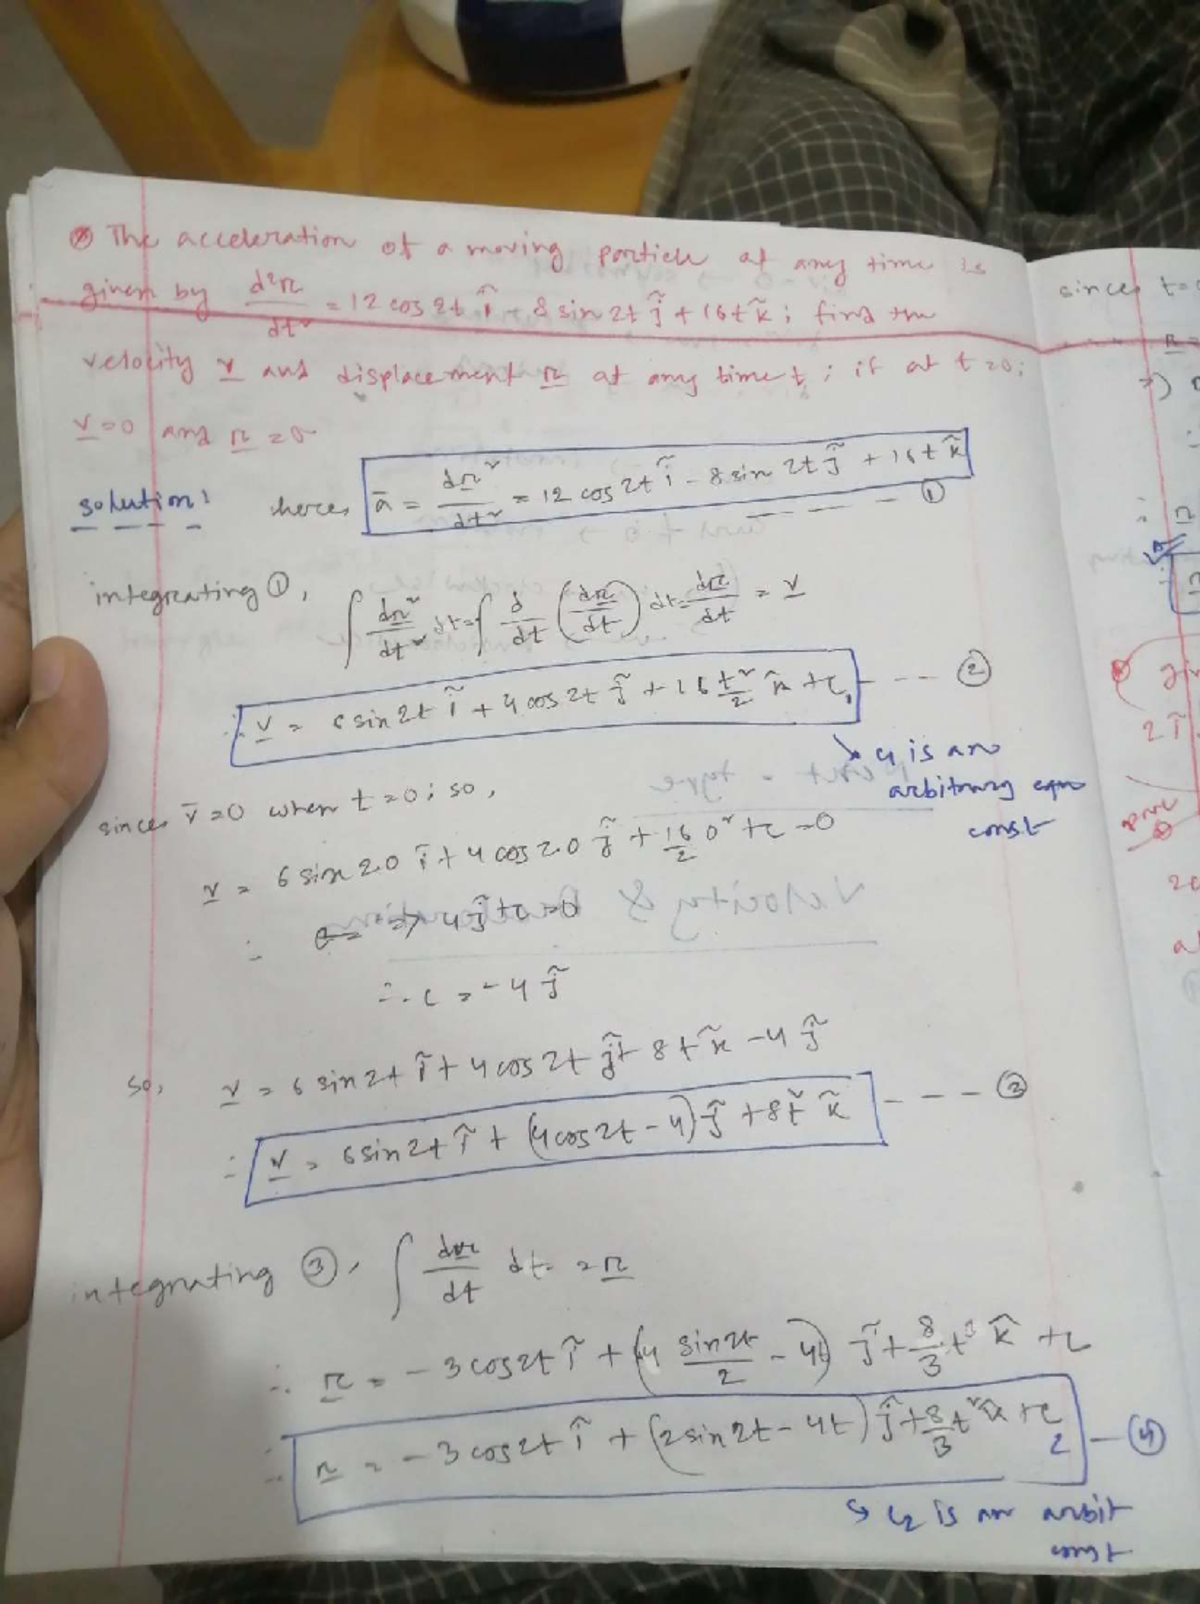 The acceleration of a moving particle at any time is
given by d²r/dt² = 12 cos 2t î - 8 sin 2t ĵ + 16t k̂ ; find the
velocity v and displacement r at any time t ; if at t=0 ;
v=0 and r=0
solution: here, ā = dr²/dt² = 12 cos 2t î - 8 sin 2t ĵ + 16t k̂
- - - - ①
integrating ①, ∫ dr²/dt² dt = ∫ d/dt (dr/dt) dt = dr/dt = v
∴ v = 6 sin 2t î + 4 cos 2t ĵ + 16 t²/2 k̂ + c₁ - - - ②
↘ c₁ is an
arbitrary
const
since v̄=0 when t=0; so,
v = 6 sin 2.0 î + 4 cos 2.0 ĵ + 16/2 0² + c = 0
∴ => 4ĵ + c = 0
∴ c = -4 ĵ
so, v = 6 sin 2t î + 4 cos 2t ĵ + 8t k̂ - 4 ĵ
∴ v = 6 sin 2t î + (4 cos 2t - 4) ĵ + 8t² k̂ - - - ③
integrating ③, ∫ dr/dt dt = r
∴ r = -3 cos 2t î + (4 sin 2t/2 - 4t) ĵ + 8/3 t³ k̂ + c
∴ r = -3 cos 2t î + (2 sin 2t - 4t) ĵ + 8/3 t² k̂ + c₂ - ④
↳ c₂ is an arbit
const
since t=
2î